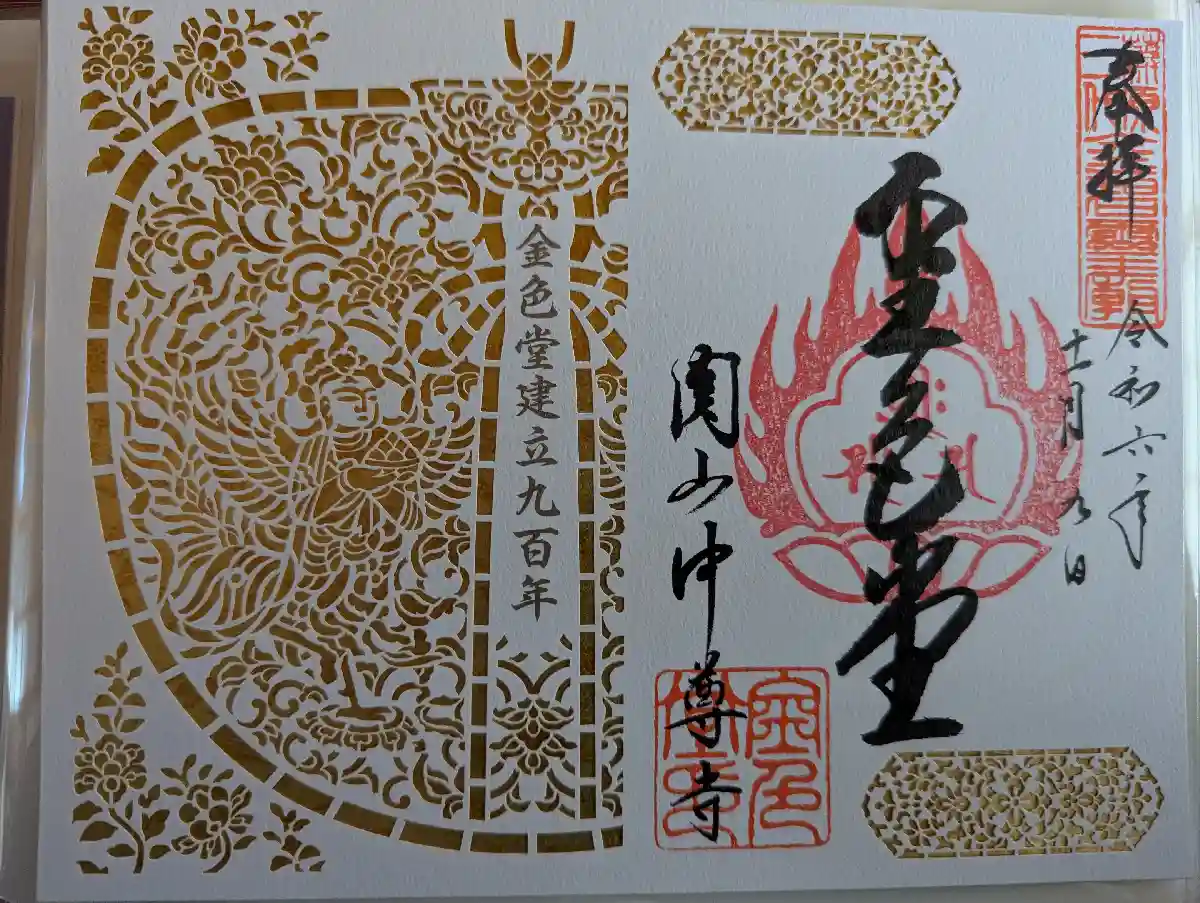 奉拝
令和六年
十一月九日
金色堂
関山中尊寺
金色堂建立九百年